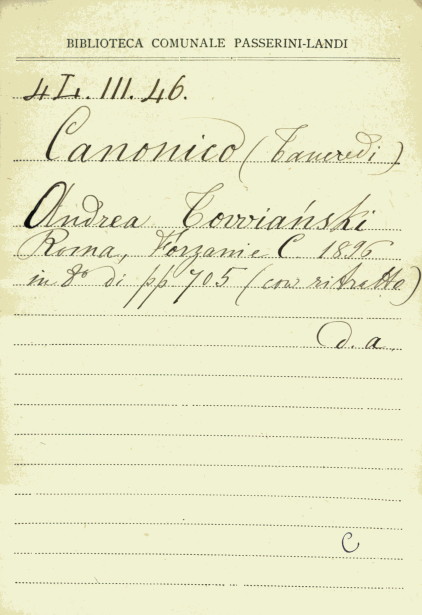 BIBLIOTECA COMUNALE PASSERINI-LANDI
4L. III. 46.
Canonico (Tancredi)
Andrea Towiański
Roma, Forzani e C 1896
in 8° di pp 705 (con ritratto)
d. a.
C